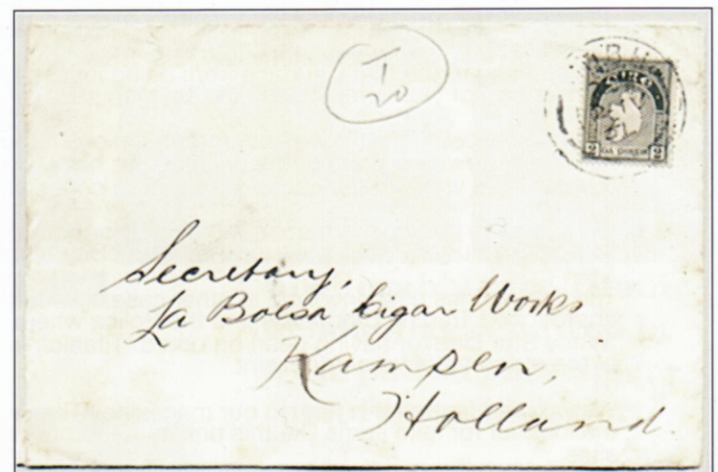 T
20
2 2
Secretary,
La Bolsa Cigar Works
Kampen,
Holland.